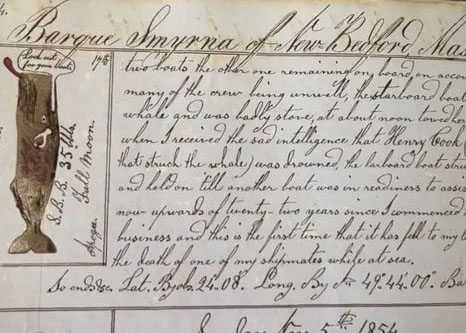 Barque Smyrna of New Bedford, Mas
Look out
for your boats
17th
S.B.B. 35 bbls
Full Moon.
Apogee.
two boats the other one remaining on board on accou
many of the crew being unwell, the starboard boat
whale and was badly stove, at about noon lowered
when I received the sad intelligence that Henry Cook (
that struck the whale) was drowned, the larboard boat struc
and held on 'till another boat was in readiness to assis
now upwards of twenty-two years since I commenced
business and this is the first time that it has fell to my l
the death of one of my shipmates while at sea.
So ends &c. Lat. By obs. 24.08. Long. By 49.44.00" Bar
5th 1854